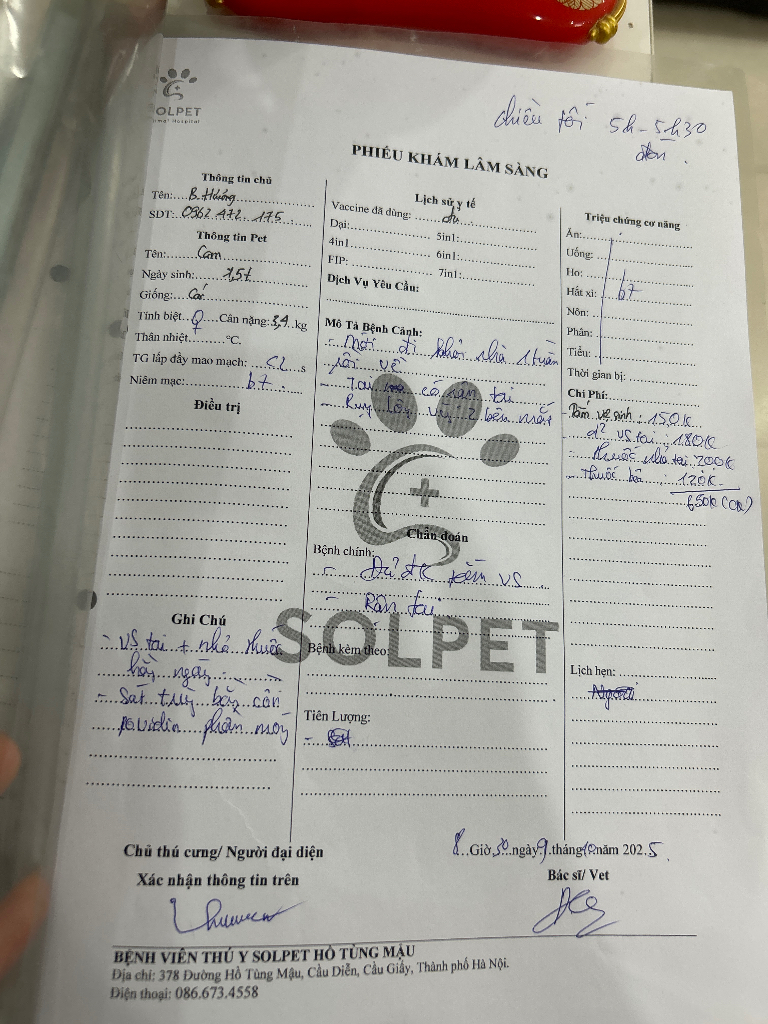 SOLPET
Animal Hospital
chiều tối 5h - 5h30
đón.
PHIẾU KHÁM LÂM SÀNG
Thông tin chủ
Tên: B. Hường
SDT: 0962 472 175
Thông tin Pet
Tên: Cam
Ngày sinh: 1,5t
Giống:
Tính biệt ♀ Cân nặng: 3,4 kg
Thân nhiệt °C.
TG lấp đầy mao mạch: <2 s
Niêm mạc: b7.
Điều trị
Ghi Chú
- VS tai + nhỏ thuốc
hằng ngày
- Sát trùng bằng cồn
povidin phần mép
Lịch sử y tế
Vaccine đã dùng: đủ
Dại: 5in1:
4in1 6in1:
FIP: 7in1:
Dịch Vụ Yêu Cầu:
Mô Tả Bệnh Cảnh:
- Mới đi khỏi nhà 1 tuần
rồi về
- Tai có rận tai
- Rụng lông vùng 2 bên mắt
Chẩn đoán
Bệnh chính:
- kèm VS
- Rận tai
SOLPET
Bệnh kèm theo:
Tiên Lượng:
-
Triệu chứng cơ năng
Ăn:
Uống:
Ho:
Hắt xì: b7
Nôn:
Phân:
Tiểu:
Thời gian bị:
Chi Phí:
Tắm vệ sinh: 150K
d² VS tai: 180K
- thuốc nhỏ tai 200K
- thuốc bôi: 120K
650K (CK)
Lịch hẹn:
8 Giờ 30 ngày 9 tháng 10 năm 2025.
Chủ thú cưng/ Người đại diện
Xác nhận thông tin trên
Bác sĩ/ Vet
BỆNH VIỆN THÚ Y SOLPET HỒ TÙNG MẬU
Địa chỉ: 378 Đường Hồ Tùng Mậu, Cầu Diễn, Cầu Giấy, Thành phố Hà Nội.
Điện thoại: 086.673.4558